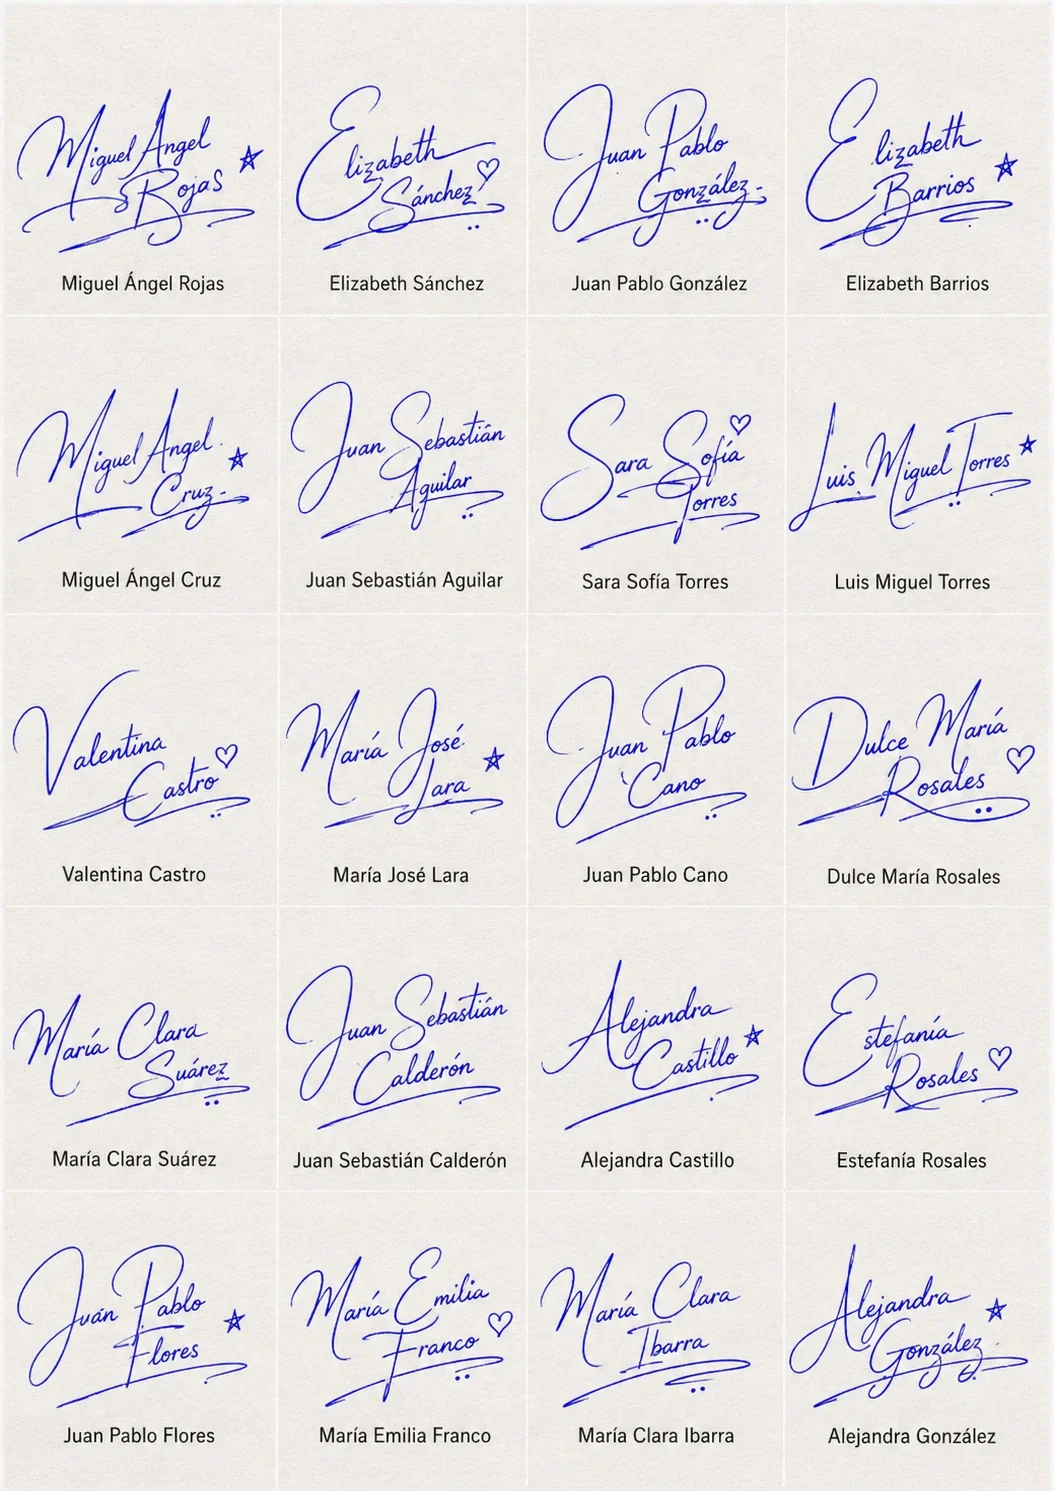 Miguel Ángel
Rojas
Miguel Ángel Rojas
Elizabeth
Sánchez
Elizabeth Sánchez
Juan Pablo
González
Juan Pablo González
Elizabeth
Barrios
Elizabeth Barrios
Miguel Angel
Cruz
Miguel Ángel Cruz
Juan Sebastián
Aguilar
Juan Sebastián Aguilar
Sara Sofía
Torres
Sara Sofía Torres
Luis Miguel Torres
Luis Miguel Torres
Valentina
Castro
Valentina Castro
María José
Lara
María José Lara
Juan Pablo
Cano
Juan Pablo Cano
Dulce María
Rosales
Dulce María Rosales
María Clara
Suárez
María Clara Suárez
Juan Sebastián
Calderón
Juan Sebastián Calderón
Alejandra
Castillo
Alejandra Castillo
Estefanía
Rosales
Estefanía Rosales
Juán Pablo
Flores
Juan Pablo Flores
María Emilia
Franco
María Emilia Franco
María Clara
Ibarra
María Clara Ibarra
Alejandra
González
Alejandra González